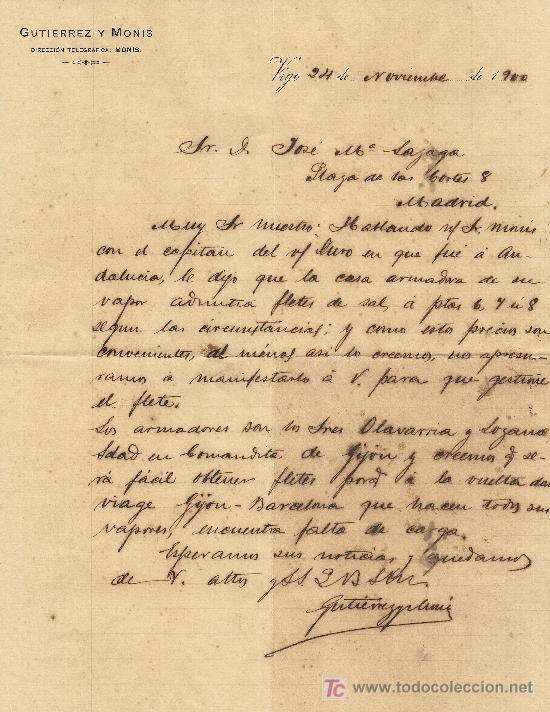 GUTIERREZ Y MONIS
DIRECCIÓN TELEGRÁFICA: MONIS.
Vigo 24 de Noviembre de 1900
Sr. D. José Mª Lazaga
Plaza de las Cortes 8
Madrid.
Muy Sr nuestro: Hablando n/ Sr. Monis
con el capitan del v/ Duro en que fué á An-
dalucia, le dijo que la casa armadora de su
vapor admitia fletes de sal á ptas 6, 7 ú 8
segun las circunstancias; y como estos precios son
convenientes, al ménos asi lo creemos, nos apresu-
ramos á manifestarlo á V. para que gestione
el flete.
Los armadores son los Sres Olavarria y Lozano
Sdad en Comandita de Gijón y creemos q̃ se-
rá fácil obtener fletes porq̃ á la vuelta del
viage Gijón-Barcelona que hacen todos sus
vapores, encuentra falta de carga.
Esperamos sus noticias y quedamos
de V. attos y SS. Q B S M
Gutierrez y Monis
TC www.todocoleccion.net